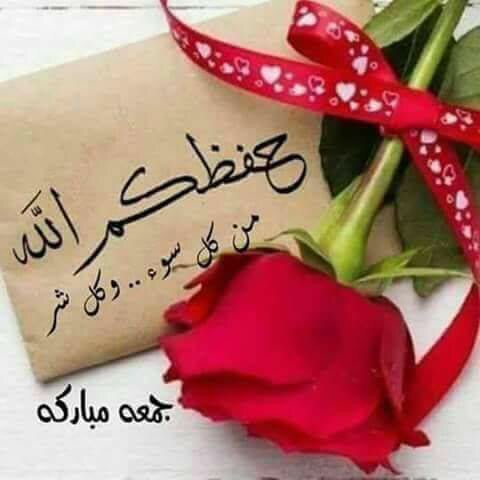 حفظكم الله
من كل سوء .. وكل شر
جمعه مباركه